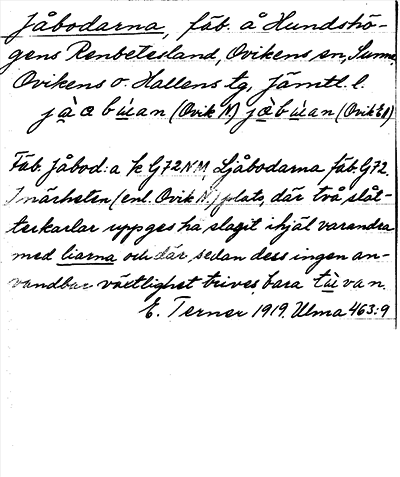 Jåbodarna, fäb. å Hundshö-
gens Renbetesland, Ovikens sn, Sunne,
Ovikens o. Hallens tg, Jämtl. l.
(Ovik N.) (Ovik EN)
Fäb. Jåbod:a k G72NM, Ljåbodarna fäb. G72.
I närheten (enl. Ovik N.) plats, där två slåt-
terkarlar uppges ha slagit ihjäl varandra
med liarna och där sedan dess ingen an-
vandbar växtlighet trives, bara
E. Terner 1919. Ulma 463:9